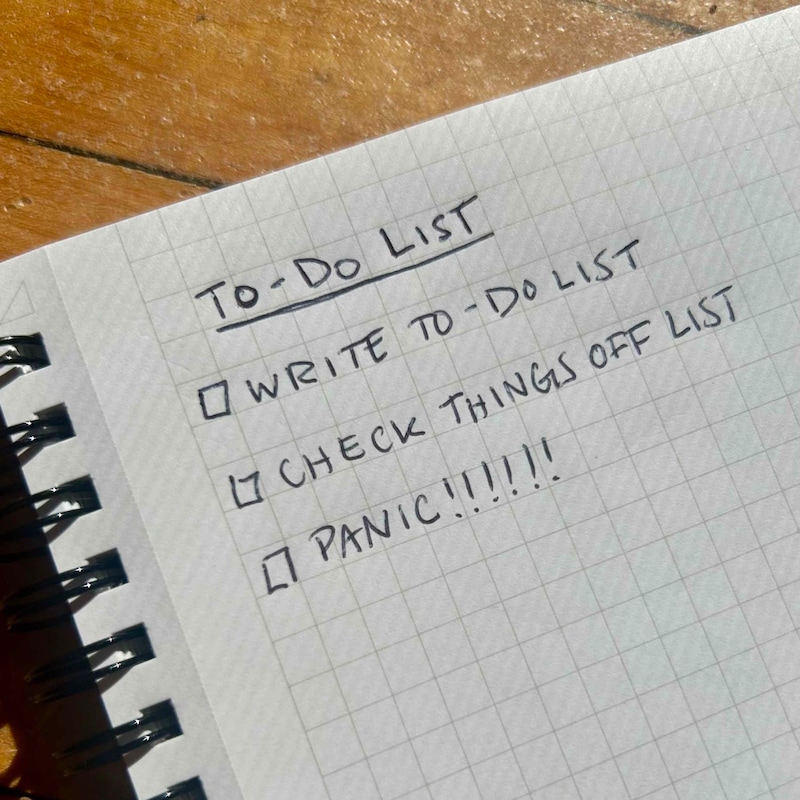 TO-DO LIST
☐ WRITE TO-DO LIST
☐ CHECK THINGS OFF LIST
☐ PANIC!!!!!!